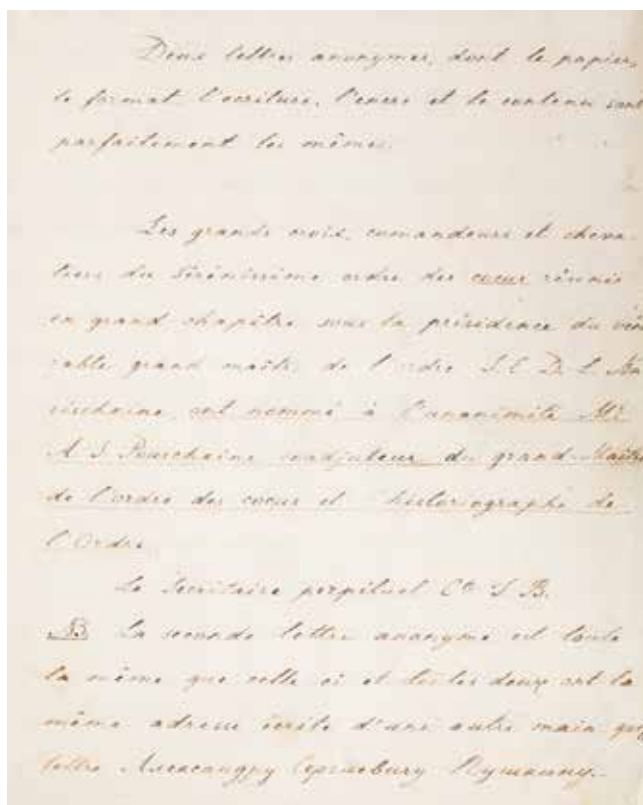 Deux lettres anonymes, dont le papier,
le format l'ecriture, l'encre et le contenu sont
parfaitement les mêmes.
Les grands croix, comandeurs et cheva-
liers du Sérénissime ordre des cocus réunis
en grand chapître sous la présidence du véné
rable grand maître de l'ordre S. E. D. L. Na
rischkine, ont nommé à l'anonimité Mr.
A S Pouschkine coadjuteur du grand Maître
de l'ordre des cocus et historiographe de
l'Ordre.
Le Secrétaire perpétuel Cte J B.
NB La seconde lettre anonyme est toute
la même que celle ci et les deux ont la
même adresse écrite d'une autre main que
lettre Александру Сергеевичу Пушкину.